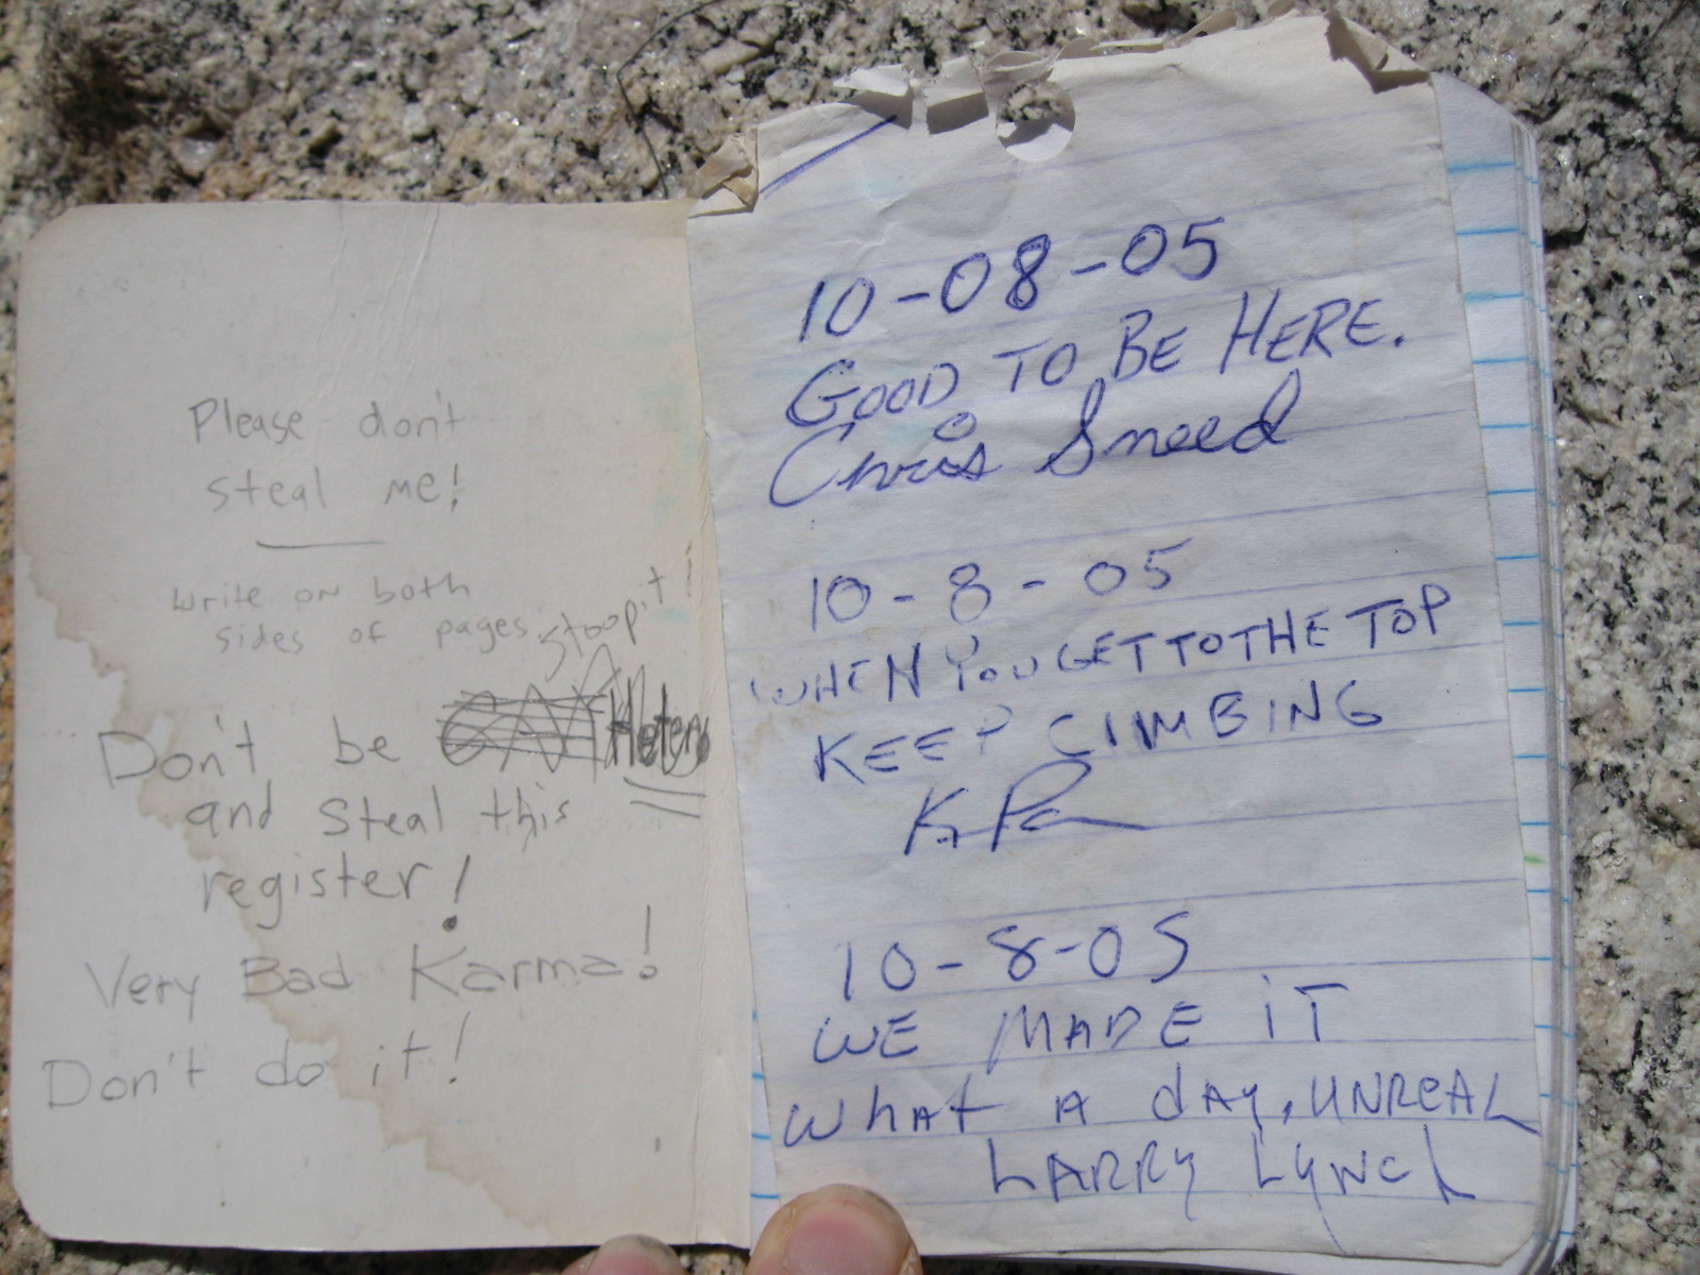 Please don't
steal me!
Write on both
sides of pages
stoopit!
Don't be Hetero
and steal this
register!
Very Bad Karma!
Don't do it!
10-08-05
GOOD TO BE HERE.
Chris Sneed
10-8-05
WHEN YOU GET TO THE TOP
KEEP CIMBING
10-8-05
WE MADE iT
WhAt A dAy, UNReAL
LARRY LyNch